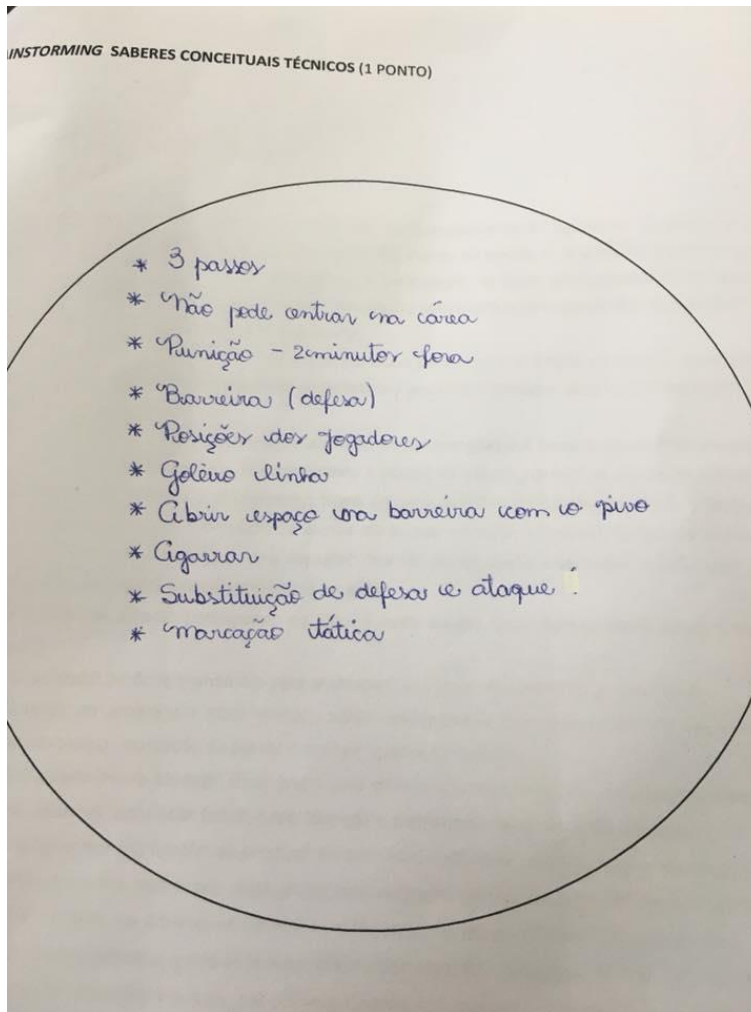 INSTORMING SABERES CONCEITUAIS TÉCNICOS (1 PONTO)
* 3 passos
* Não pode entrar na área
* Punição - 2 minutos fora
* Barreira (defesa)
* Posições dos jogadores
* Goleiro linha
* Abrir espaço na barreira com o pivo
* Agarrar
* Substituição de defesa e ataque
* Marcação tática